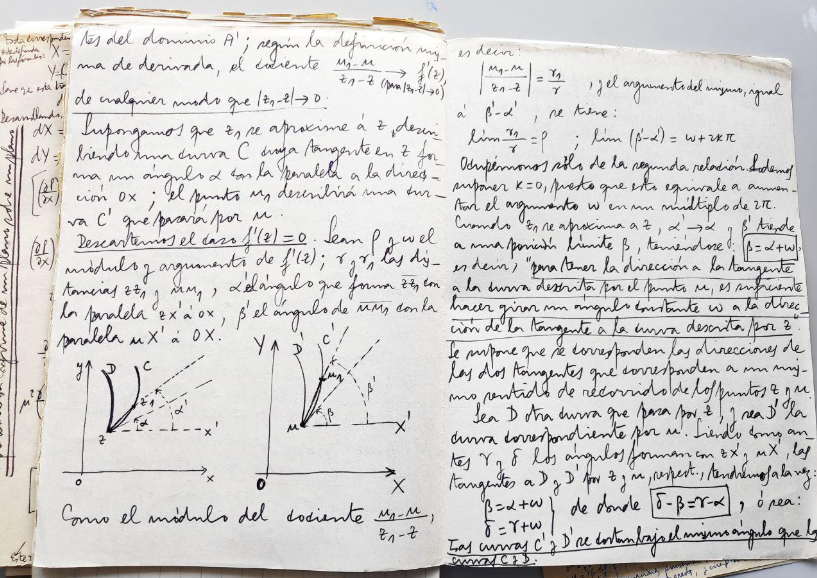 tes del dominio A'; según la definición mis-
ma de derivada, el cociente (u₁-u)/(z₁-z) → f'(z),
(para |z₁-z|→0)
de cualquier modo que |z₁-z|→0.
Supongamos que z₁ se aproxime á z, descri-
biendo una curva C cuya tangente en z for-
ma un ángulo α con la paralela a la direc-
ción ox; el punto u₁ describirá una cur-
va C' que pasará por u.
Descartemos el caso f'(z)=0. Sean ρ y ω el
módulo y argumento de f'(z); r y r₁ las dis-
tancias zz₁ y uu₁, α' el ángulo que forma zz₁ con
la paralela zx' á ox, β' el ángulo de uu₁ con la
paralela uX' á OX.
y
D
C
z₁
α
α'
z
x'
o
x
Y
D'
C'
u₁
β
β'
u
X'
O
X
Como el módulo del cociente (u₁-u)/(z₁-z),
es decir:
|(u₁-u)/(z₁-z)| = r₁/r , y el argumento del mismo, igual
á β'-α', se tiene:
lím r₁/r = ρ ; lím (β'-α') = ω+2kπ
Ocupémonos sólo de la segunda relación. Podemos
suponer k=0, puesto que esto equivale a aumen-
tar el argumento ω en un múltiplo de 2π.
Cuando z₁ se aproxima a z, α'→α y β' tiende
a una posición límite β, teniendose: β=α+ω,
es decir, "para tener la dirección a la tangente
a la curva descrita por el punto u, es suficiente
hacer girar un ángulo constante ω a la direc-
ción de la tangente a la curva descrita por z".
Se supone que se corresponden las direcciones de
las dos tangentes que corresponden a un mis-
mo sentido de recorrido de los puntos z y u.
Sea D otra curva que pasa por z, y sea D' la
curva correspondiente por u. Siendo como an-
tes γ y δ los ángulos forman con zx' y uX', las
tangentes a D y D' por z y u, respect., tendremos a la vez:
β=α+ω
δ=γ+ω } de donde δ-β=γ-α , ó sea:
Las curvas C' y D' se cortan bajo el mismo ángulo que las
curvas C y D.